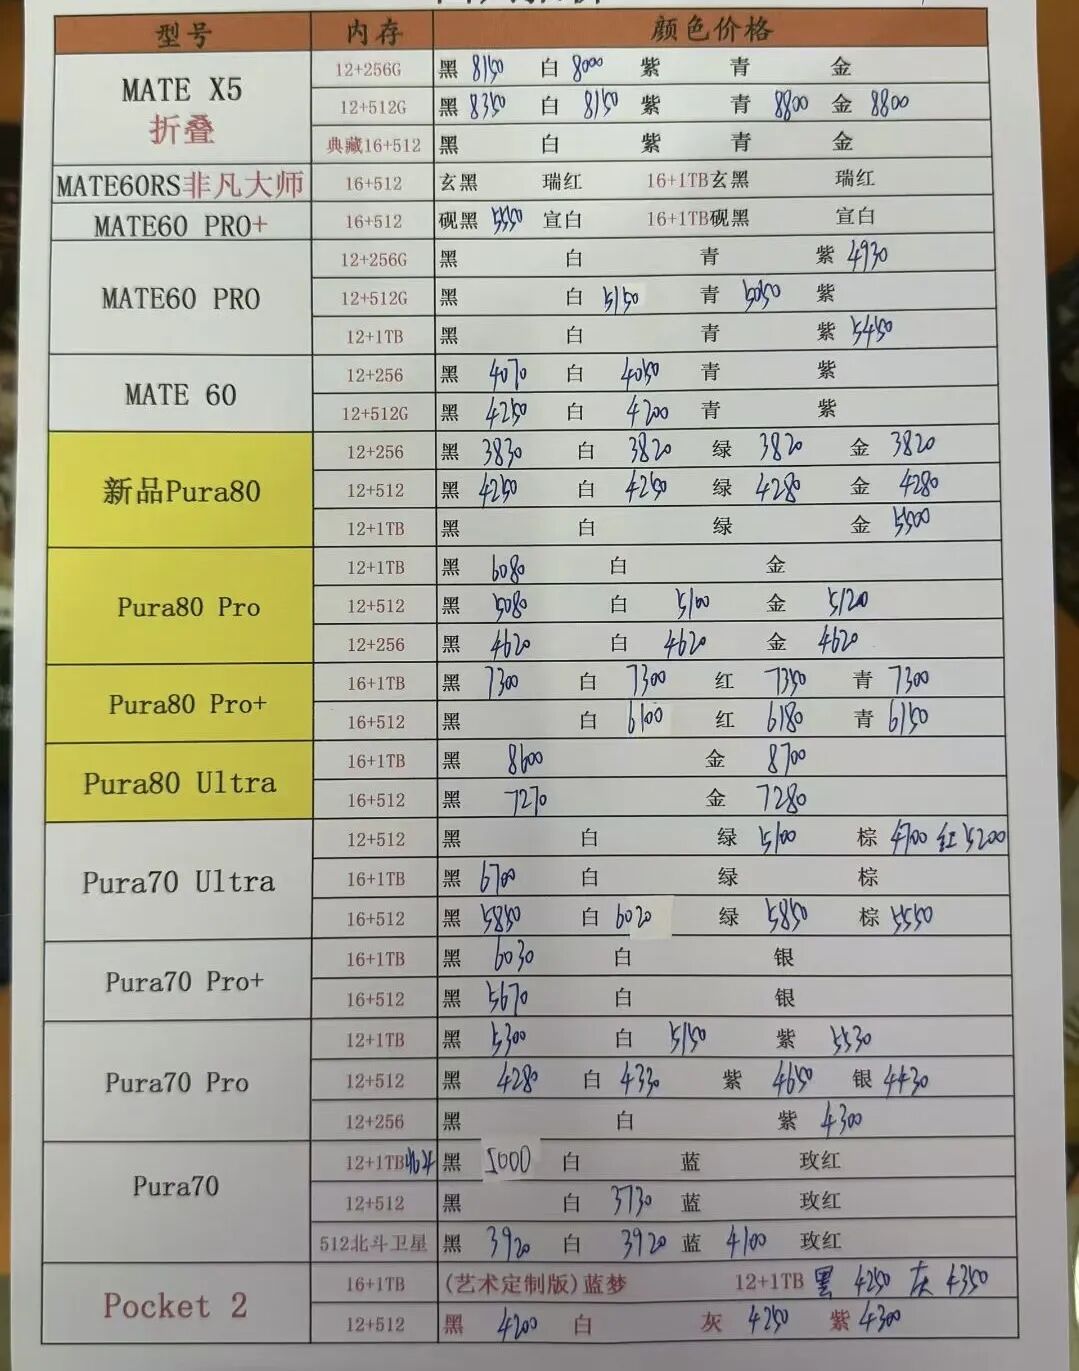 型号 内存 颜色价格
MATE X5 折叠 12+256G 黑 8150 白 8000 紫 青 金
12+512G 黑 8350 白 8150 紫 青 8800 金 8800
典藏16+512 黑 白 紫 青 金
MATE60RS非凡大师 16+512 玄黑 瑞红 16+1TB玄黑 瑞红
MATE60 PRO+ 16+512 砚黑 5550 宣白 16+1TB砚黑 宣白
MATE60 PRO 12+256G 黑 白 青 紫 4930
12+512G 黑 白 5150 青 5050 紫
12+1TB 黑 白 青 紫 5450
MATE 60 12+256 黑 4070 白 4050 青 紫
12+512G 黑 4250 白 4200 青 紫
新品Pura80 12+256 黑 3830 白 3820 绿 3820 金 3820
12+512 黑 4250 白 4250 绿 4280 金 4280
12+1TB 黑 白 绿 金 5500
Pura80 Pro 12+1TB 黑 6080 白 金
12+512 黑 5080 白 5100 金 5120
12+256 黑 4620 白 4620 金 4620
Pura80 Pro+ 16+1TB 黑 7300 白 7300 红 7350 青 7300
16+512 黑 白 6100 红 6180 青 6150
Pura80 Ultra 16+1TB 黑 8600 金 8700
16+512 黑 7270 金 7280
Pura70 Ultra 12+512 黑 白 绿 5100 棕 4700 红 5200
16+1TB 黑 6700 白 绿 棕
16+512 黑 5850 白 6020 绿 5850 棕 5550
Pura70 Pro+ 16+1TB 黑 6030 白 银
16+512 黑 5670 白 银
Pura70 Pro 12+1TB 黑 5300 白 5150 紫 5530
12+512 黑 4280 白 4330 紫 4650 银 4430
12+256 黑 白 紫 4300
Pura70 12+1TB北斗 黑 5000 白 蓝 玫红
12+512 黑 白 3730 蓝 玫红
512北斗卫星 黑 3920 白 3920 蓝 4100 玫红
Pocket 2 16+1TB (艺术定制版)蓝梦 12+1TB 黑 4250 灰 4350
12+512 黑 4200 白 灰 4250 紫 4300